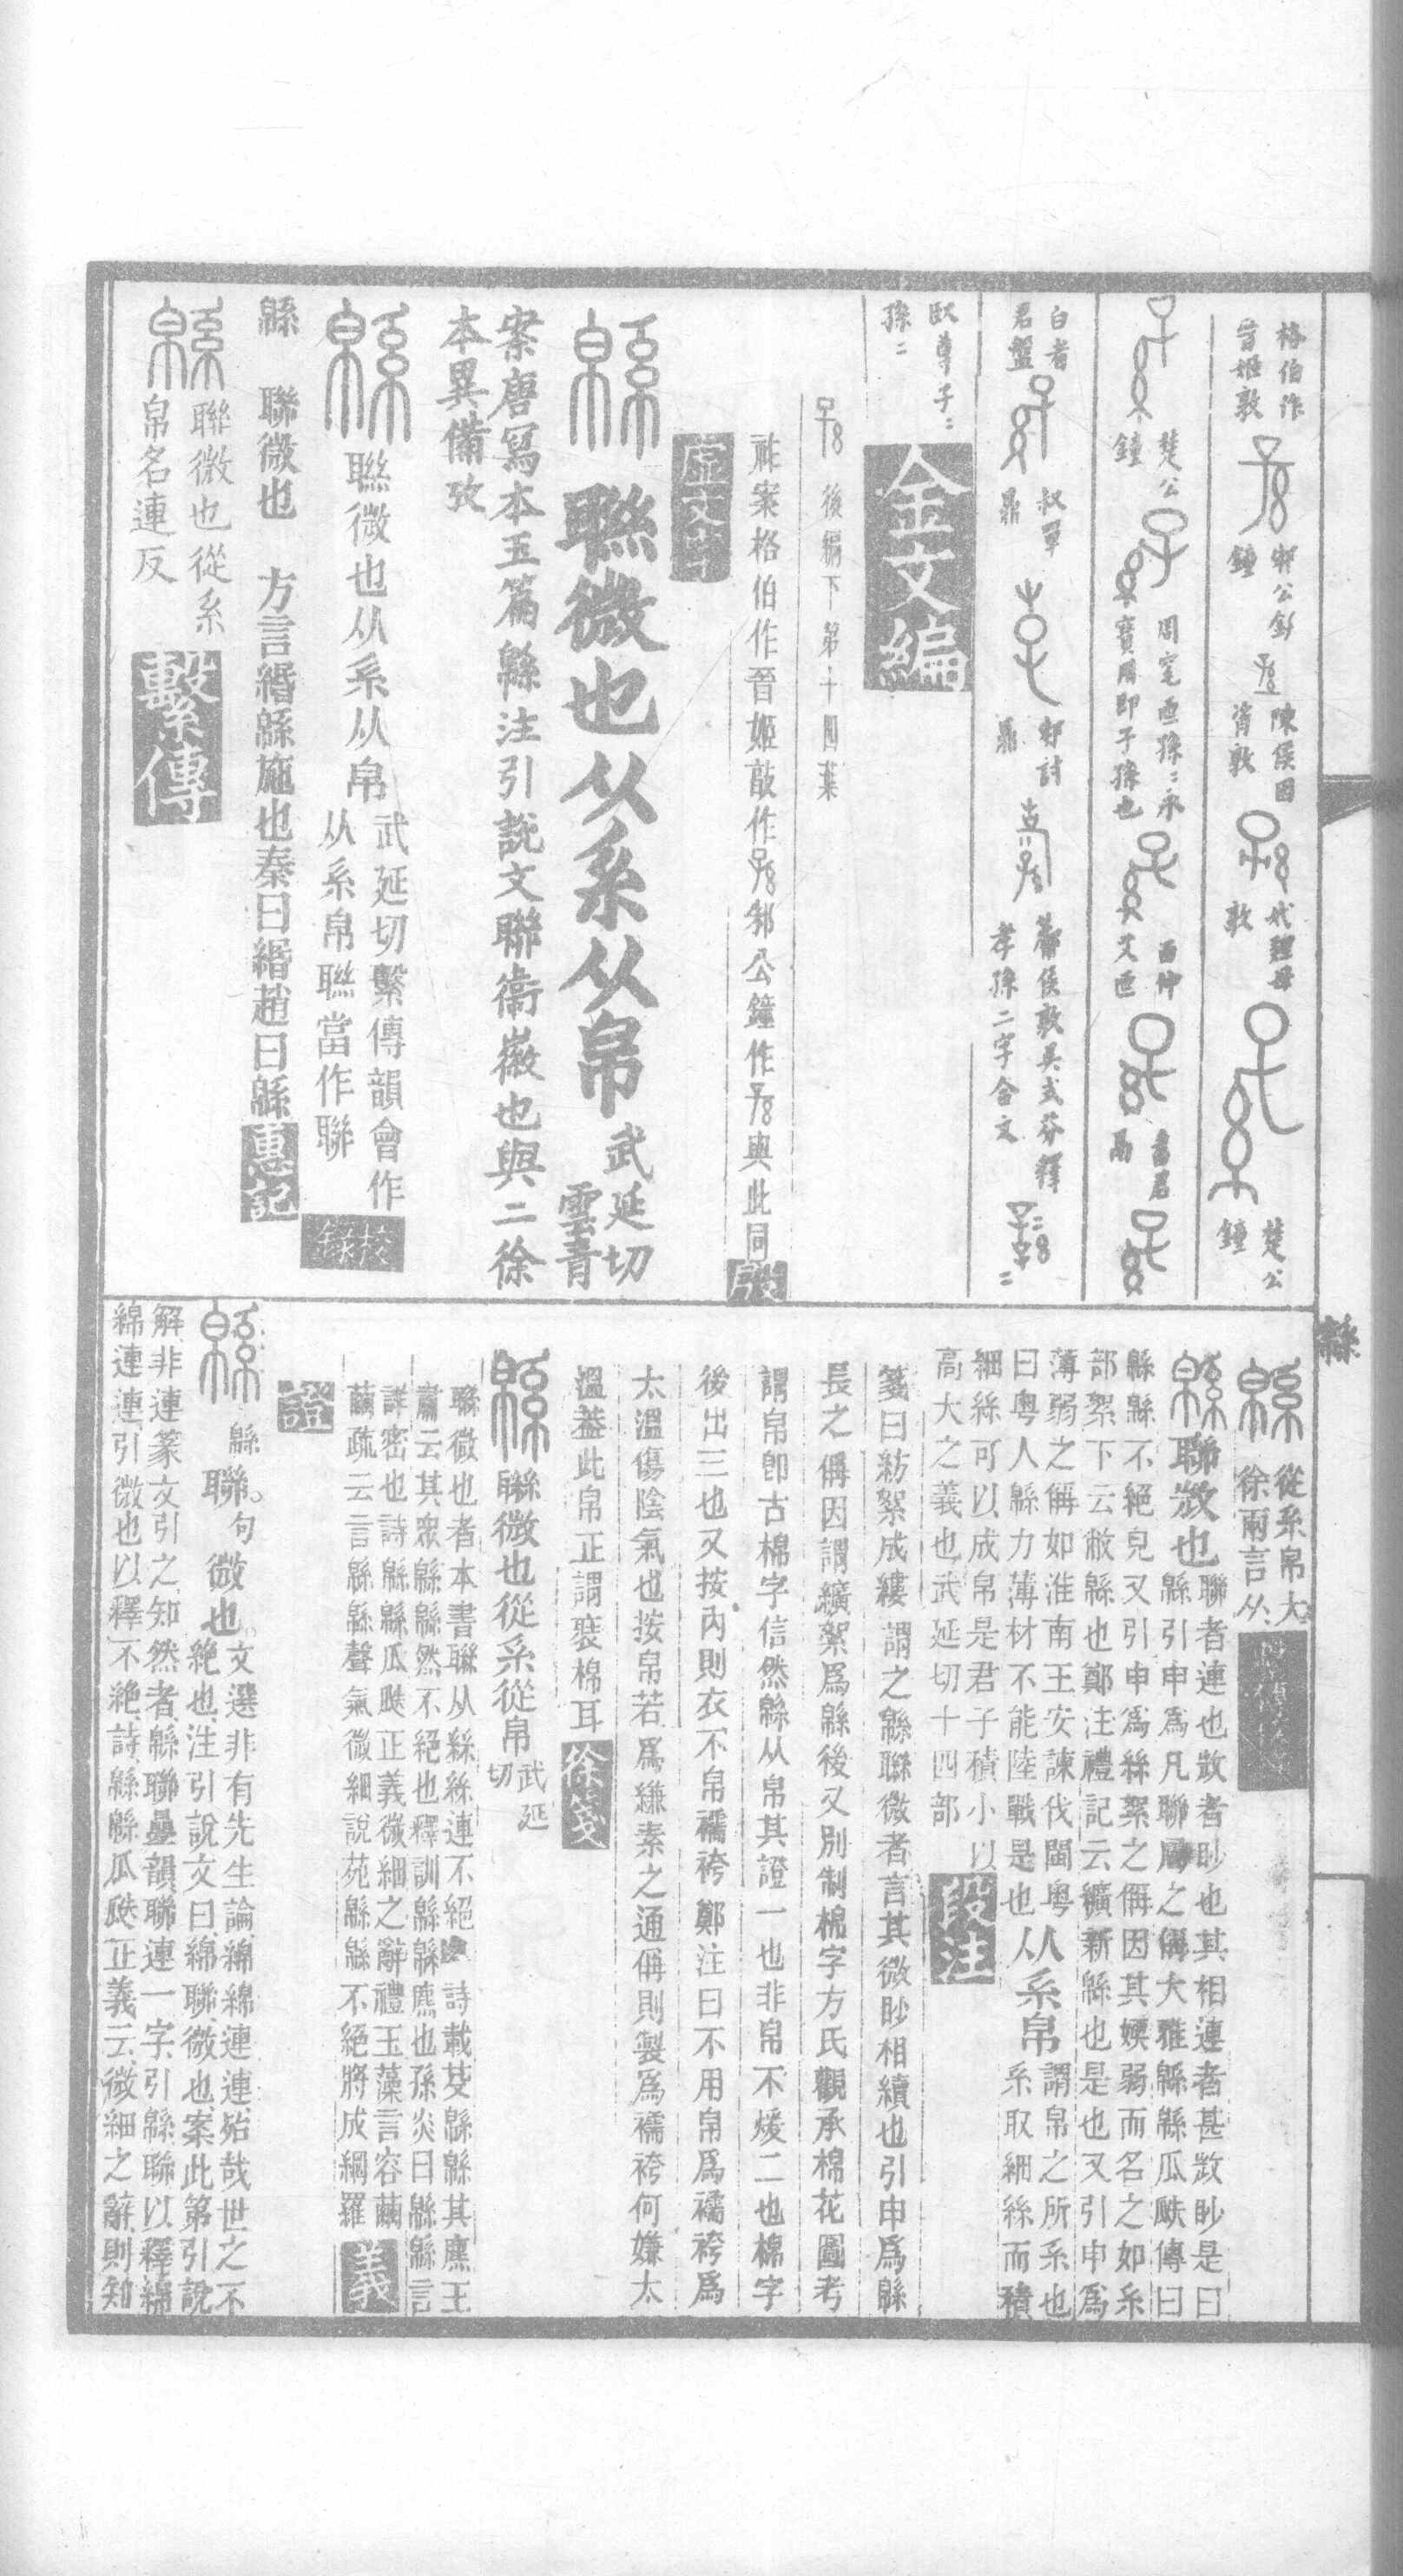 格伯作
晉姬敦
邾公釛
鐘
陳侯因
𦣞敦
敦
楚公
鐘
楚公
鐘
周宅匜孫二永
寶用即子孫也
艾匜
鬲
白者
君盤
叔單
鼎
邾討
鼎
孝孫二字合文
㽙尊子二
孫二
金文編
後編下第十四葉
祚案格伯作晉姬敦作
邾公鐘作
與此同
殷
虛文字
緜
聮微也从系从帛
武延切
雲青
案唐寫本玉篇緜注引說文聯微也與二徐
本異備攷
緜
聯微也从系从帛
武延切繫傳韻會作
从系帛聯當作聯
校
錄
緜 聯微也 方言緡緜施也秦曰緡趙曰緜
惠記
緜
聯微也從系
帛名連反
繫傳
緜
緜
從系帛大
徐兩言从
緜
聯𢼸也
聯者連也𢼸者眇也其相連者甚𢼸眇是曰
緜引申爲凡聯屬之偁大雅緜緜瓜瓞傳曰
緜緜不絕皃又引申爲絲絮之偁因其媆弱而名之如系
部絮下云敝緜也鄭注禮記云纊新緜也是也又引申爲
薄弱之偁如淮南王安諫伐閩粵
曰粵人緜力薄材不能陸戰是也
从系帛
謂帛之所系也
系取細絲而積
細絲可以成帛是君子積小以
高大之義也武延切十四部
段注
箋曰紡絮成縷謂之緜聯微者言其微眇相續也引申爲緜
長之偁因謂纊絮爲緜後又別制棉字方氏觀承棉花圖考
謂帛卽古棉字信然緜从帛其證一也非帛不煖二也棉字
後出三也又按內則衣不帛襦袴鄭注曰不用帛爲襦袴爲
太溫傷陰氣也按帛若爲縑素之通偁則製爲襦袴何嫌太
溫葢此帛正謂裝棉耳
徐箋
緜
聯微也從系從帛
武延
切
聯微也者本書聯从絲絲連不絕也詩載芟緜緜其麃王
肅云其衆緜緜然不絕也釋訓緜緜麃也孫炎曰緜緜言
詳密也詩緜緜瓜瓞正義微細之辭禮玉藻言容繭
繭疏云言緜緜聲氣微細說苑緜緜不絕將成網羅
義
證
緜
緜
聯。句微也。
文選非有先生論、綿綿連連、殆哉世之不
絕也、注引說文曰、綿聯、微也、案此第引說
解、非連篆文引之、知然者、緜聯疊韻聯連一字、引緜聯以釋綿
綿連連、引微也以釋不絕、詩、緜緜瓜瓞、正義云、微細之辭、則知